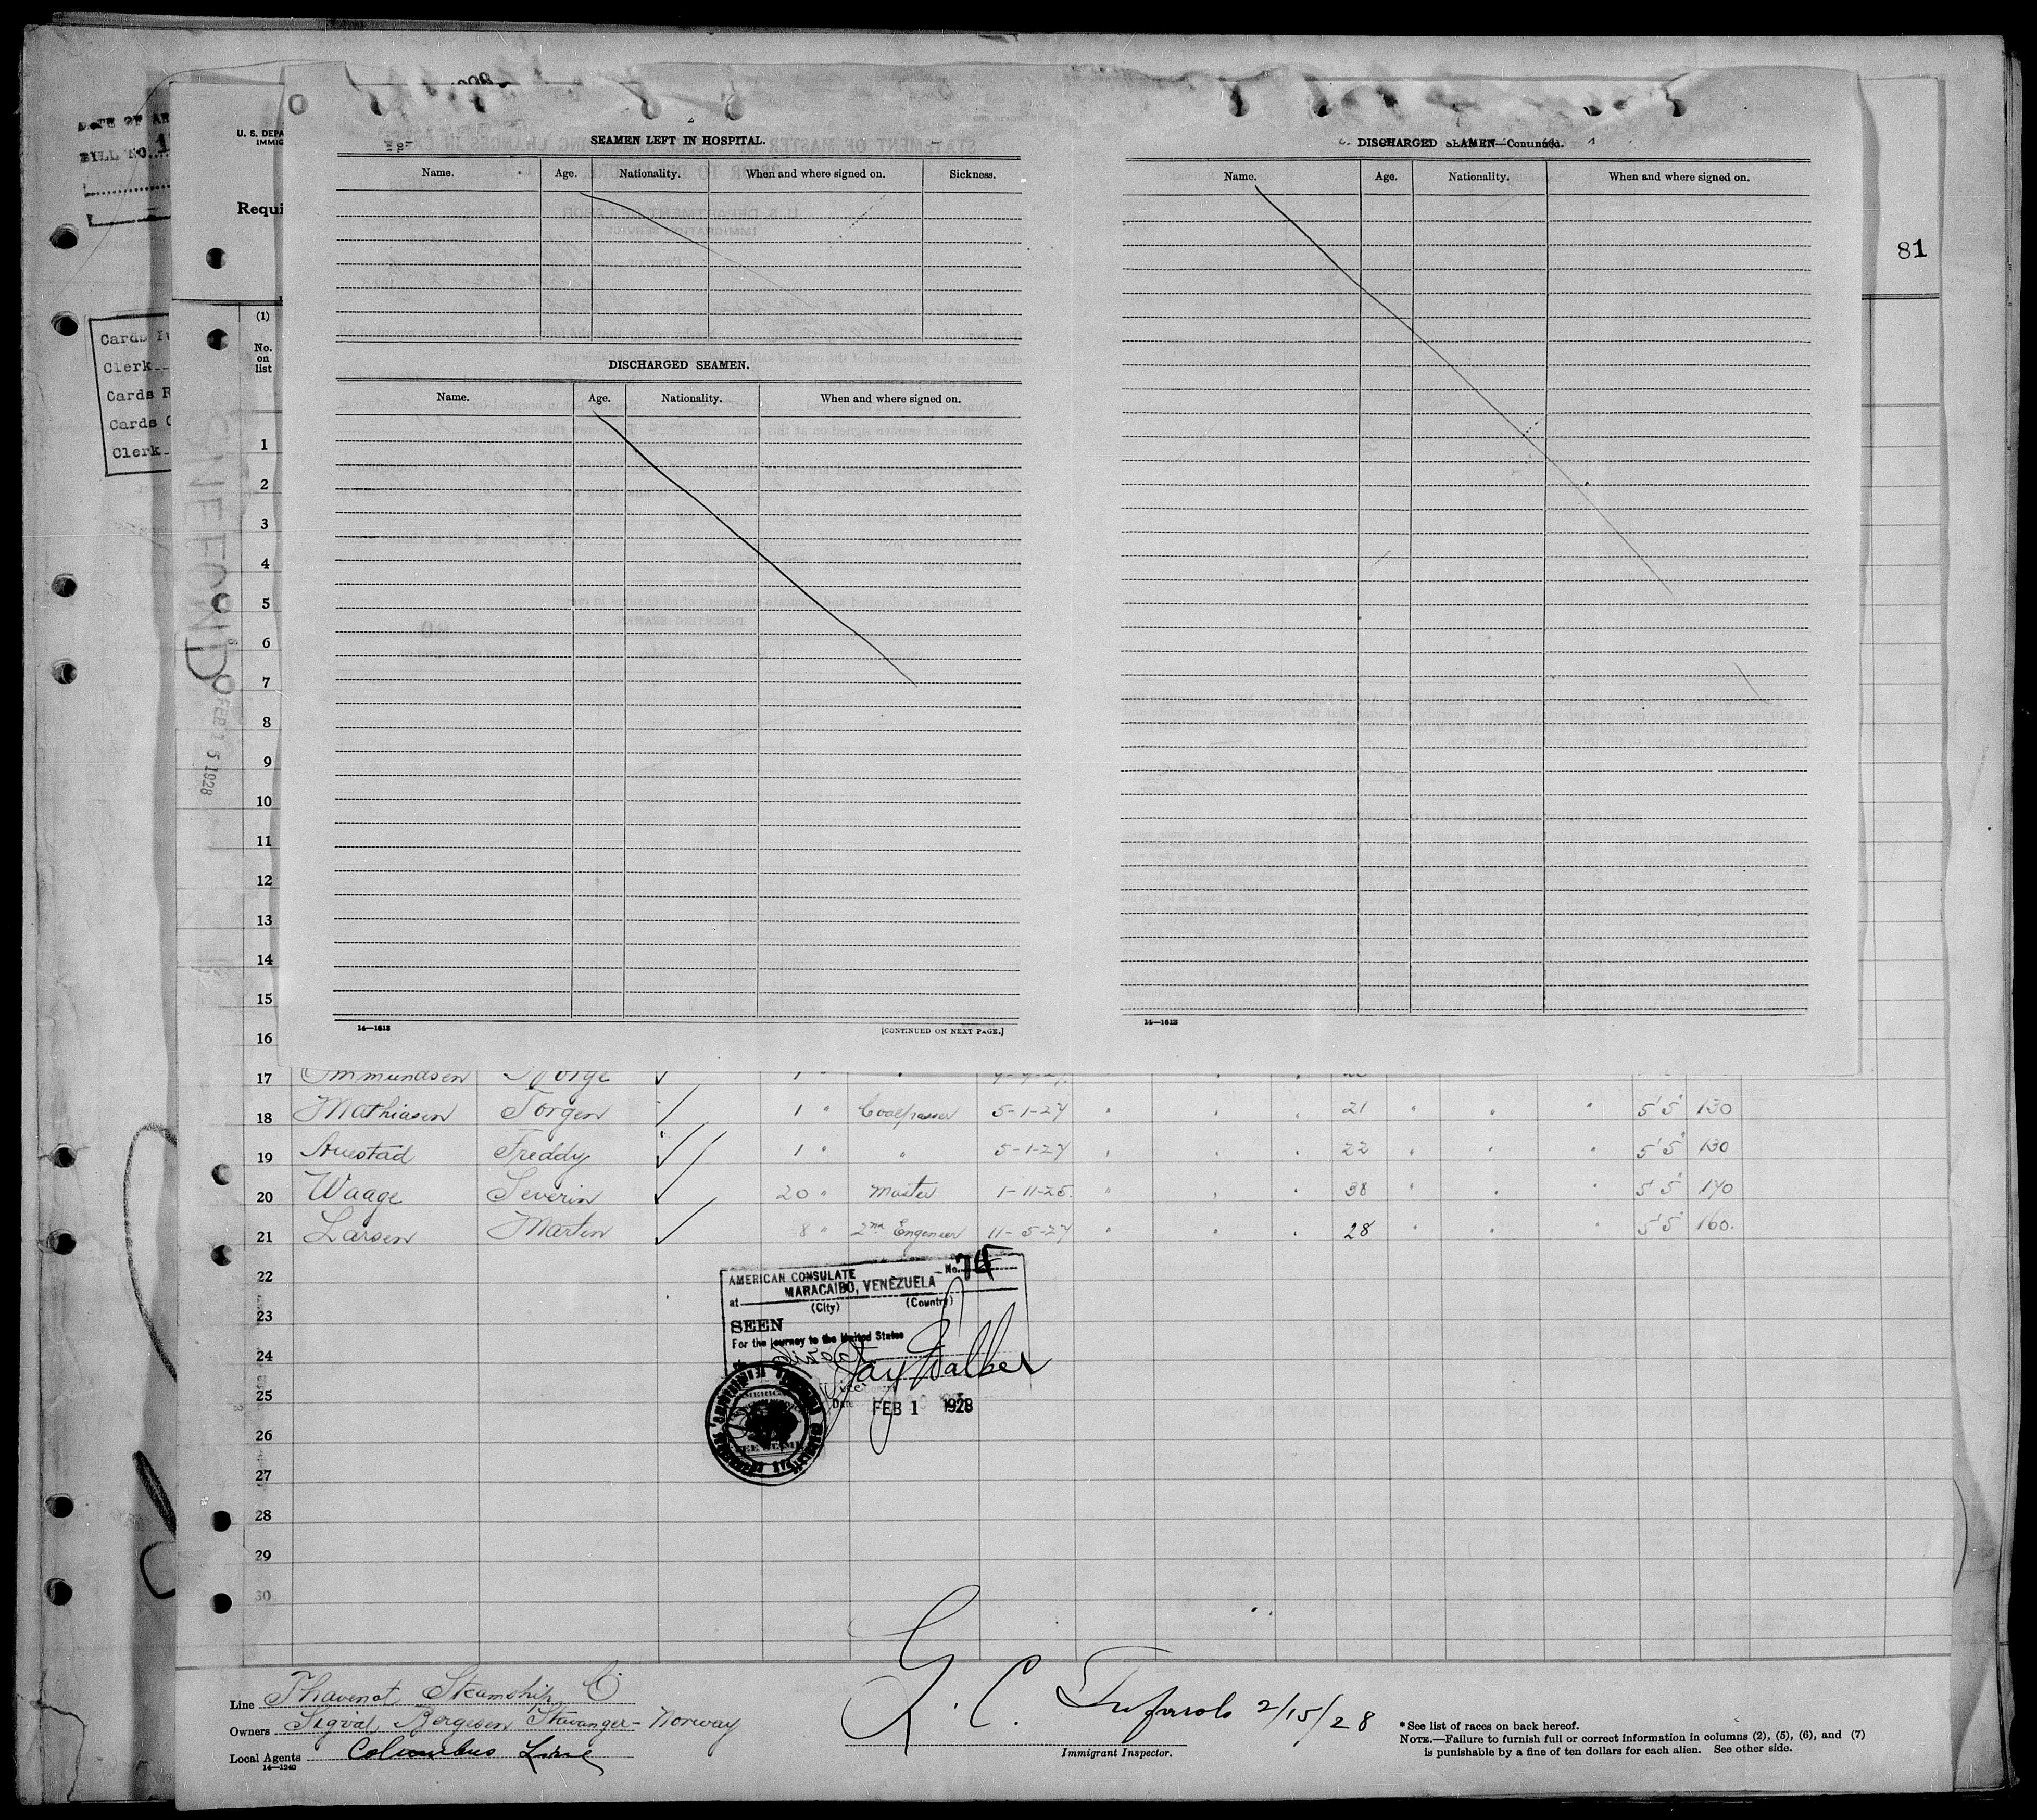 81
U. S. DEPA
IMMIG
Requi
DATE OF AR
BILL NO. 1
Cards
Clerk
Cards R
Cards
Clerk
FEB 15 1928
SEAMEN LEFT IN HOSPITAL.
Name. Age. Nationality. When and where signed on. Sickness.
DISCHARGED SEAMEN.
Name. Age. Nationality. When and where signed on.
14—1613 [CONTINUED ON NEXT PAGE.]
DISCHARGED SEAMEN—Continued.
Name. Age. Nationality. When and where signed on.
14—1613
(1)
No.
on
list
1
2
3
4
5
6
7
8
9
10
11
12
13
14
15
16
17
18 Mathiasen Torgen ✓ 1 " Coalpasser 5-1-27 " " " 21 " " " 5' 5" 130
19 Auestad Freddy ✓ 1 " " 5-1-27 " " " 22 " " " 5' 5" 130
20 Waage Severin ✓ 20 " Master 1-11-25 " " " 38 " " " 5' 5" 170
21 Larsen Martin ✓ 8 " 2nd Engeneer 11-5-27 " " " 28 " " " 5' 5" 160.
22
23
24
25
26
27
28
29
30
AMERICAN CONSULATE No. 74
at MARACAIBO, VENEZUELA
(City) (Country)
SEEN
For the journey to the United States
Jay Walker
Vice
Date FEB 1 1928
Line Thavenot Steamship Co
Owners Sigval Bergesen Stavanger - Norway
Local Agents Columbus Line
14—1240
2/15/28
Immigrant Inspector.
* See list of races on back hereof.
NOTE.—Failure to furnish full or correct information in columns (2), (5), (6), and (7)
is punishable by a fine of ten dollars for each alien. See other side.